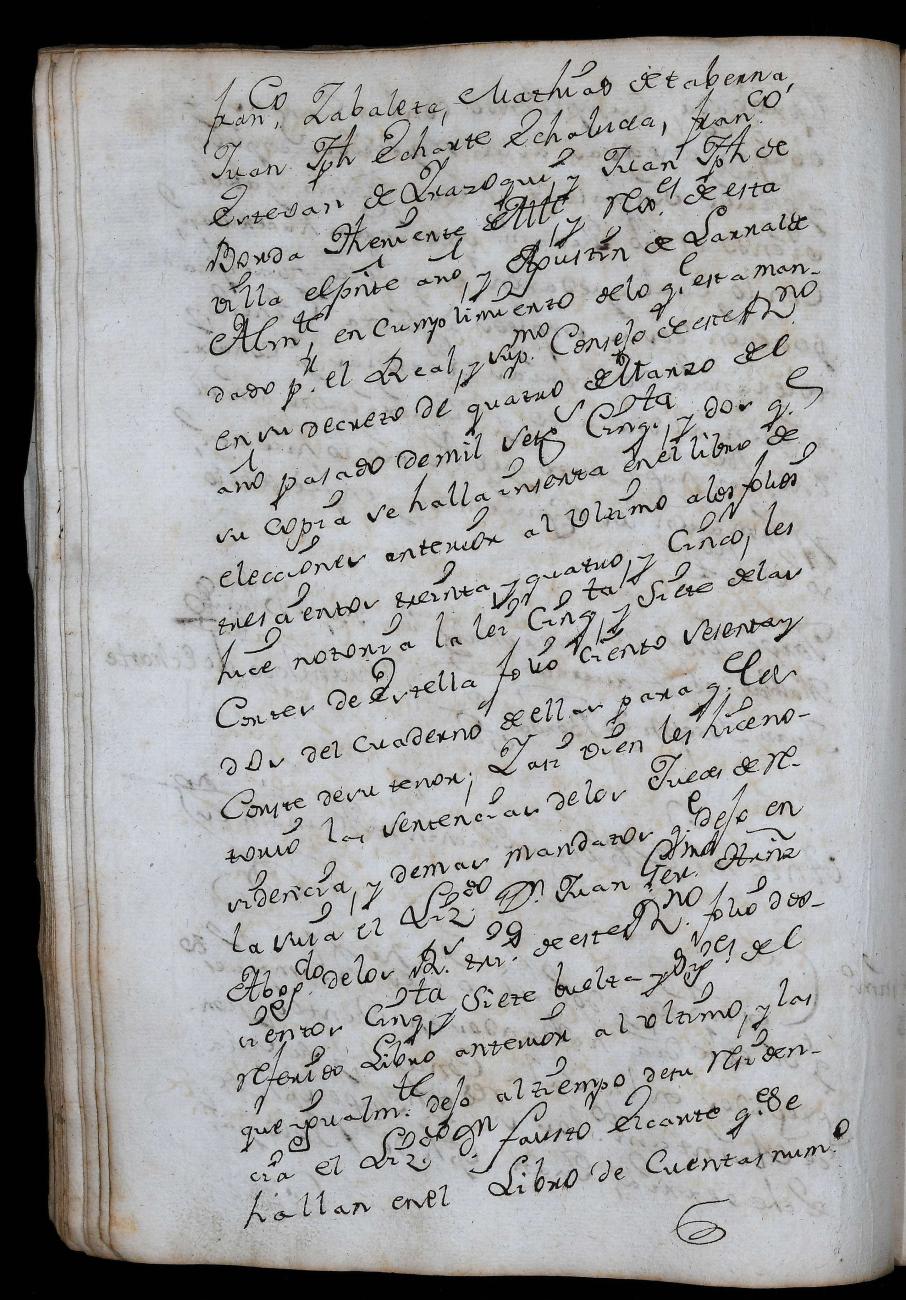 fran.co Zabaleta, Mathias de taberna
Juan Jph Echarte Echalucea, fran.co
Estevan de Yrazoqui, y Juan Jph de
Borda Theniente Alle y Rex.es de esta
villa el pnte año, y Agustin de Larralde
Almte, en Cumplimiento de lo q.e esta man-
dado p.r el Real, y sup.mo Consejo de este R.no
en su decreto de quatro de Marzo del
año pasado de mil Sets Cinq.ta y dos q.e
su Copia se halla inserta en el libro de
elecciones anterior al Vltimo a los folios
trescientos treinta y quatro, y Cinco, les
hice notoria la lei Cinq.ta y Siete de las
Cortes de Estella folio ciento Sesenta y
dos del Cuaderno de ellas para q.e les
Conste de su tenor; Y asi vien les hice no-
torio las Sentencias de los Jueces de Re-
sidencia, y demas mandatos q.e dejo en
la suia el Liz.do D.n Juan Ger.mo Hriz
Abog.do de los R.s tri.s de este R.no folio dos-
cientos Cinq.ta y Siete buelta y sig.es del
referido Libro anterior al Vltimo, y las
que igualm.te dejo al tiempo de su Residen-
cia el Liz.do D.n fausto Elcarte q.e se
hallan en el Libro de Cuentas num.o